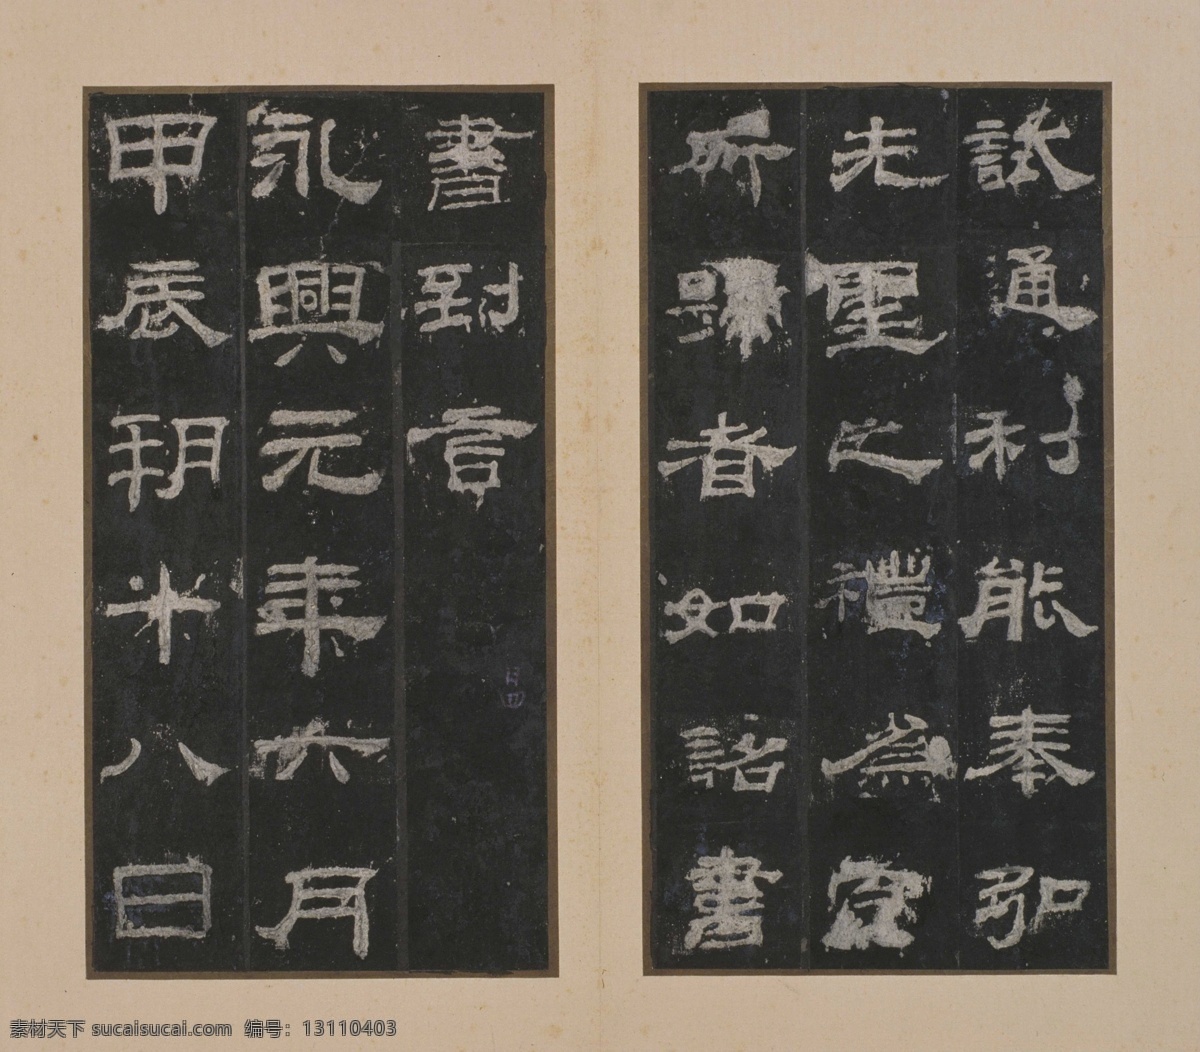 試通利能奉弘
先聖之禮爲宗
所歸者如詔書
書到言
永興元年六月
甲辰朔十八日
素材天下 sucaisucai.com 编号：13110403